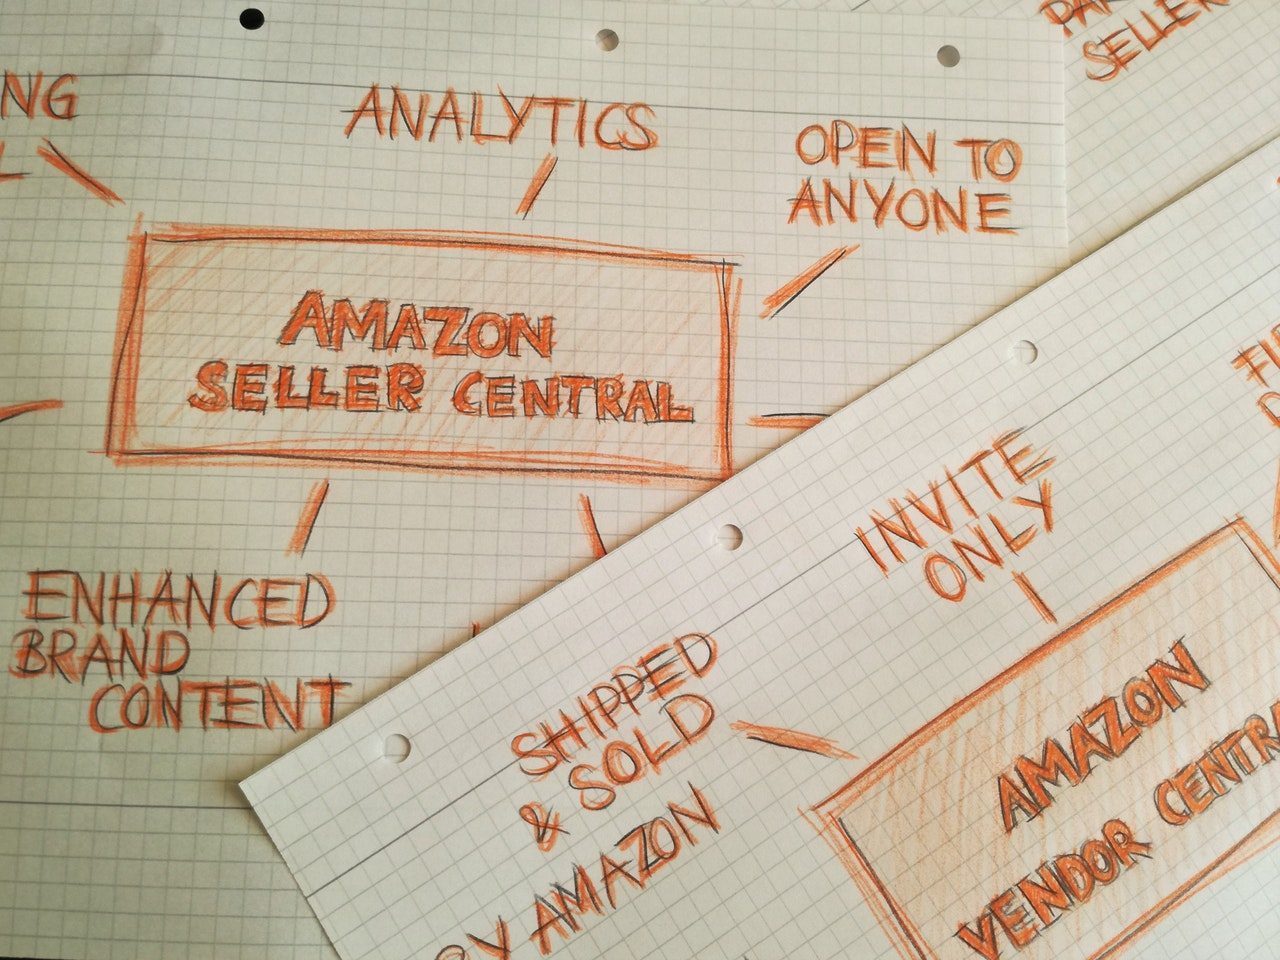 ANALYTICS
OPEN TO
ANYONE
AMAZON
SELLER CENTRAL
ENHANCED
BRAND
CONTENT
SELLER
INVITE
ONLY
SHIPPED
& SOLD
BY AMAZON
AMAZON
VENDOR CENTRA